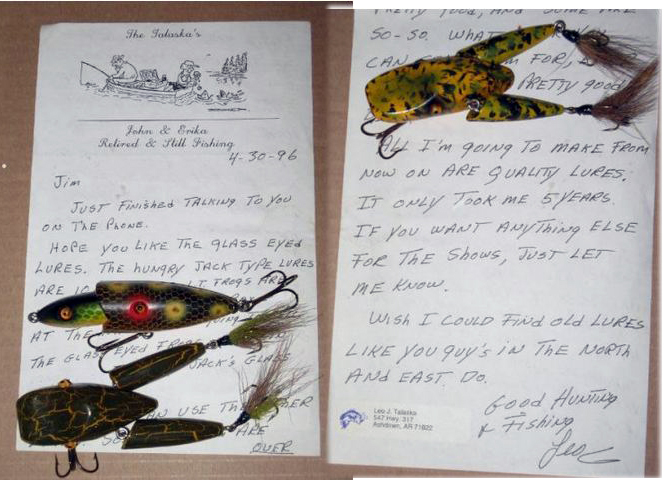 The Talaska's
John & Erika
Retired & Still Fishing
4-30-96
Jim
Just finished talking to you
on the phone.
Hope you like the glass eyed
lures. The hungry Jack type lures
are
frogs are
at the
the glass eyed frog
Jack's glass
can use the
are
over
pretty good, and some are
so-so. What
can for,
pretty good
All I'm going to make from
now on are quality lures.
It only took me 5 years.
If you want anything else
for the shows, just let
me know.
Wish I could find old lures
like you guy's in the north
and east do.
Good Hunting
& Fishing
Leo
Leo J. Talaska
547 Hwy. 317
Ashdown, AR 71822